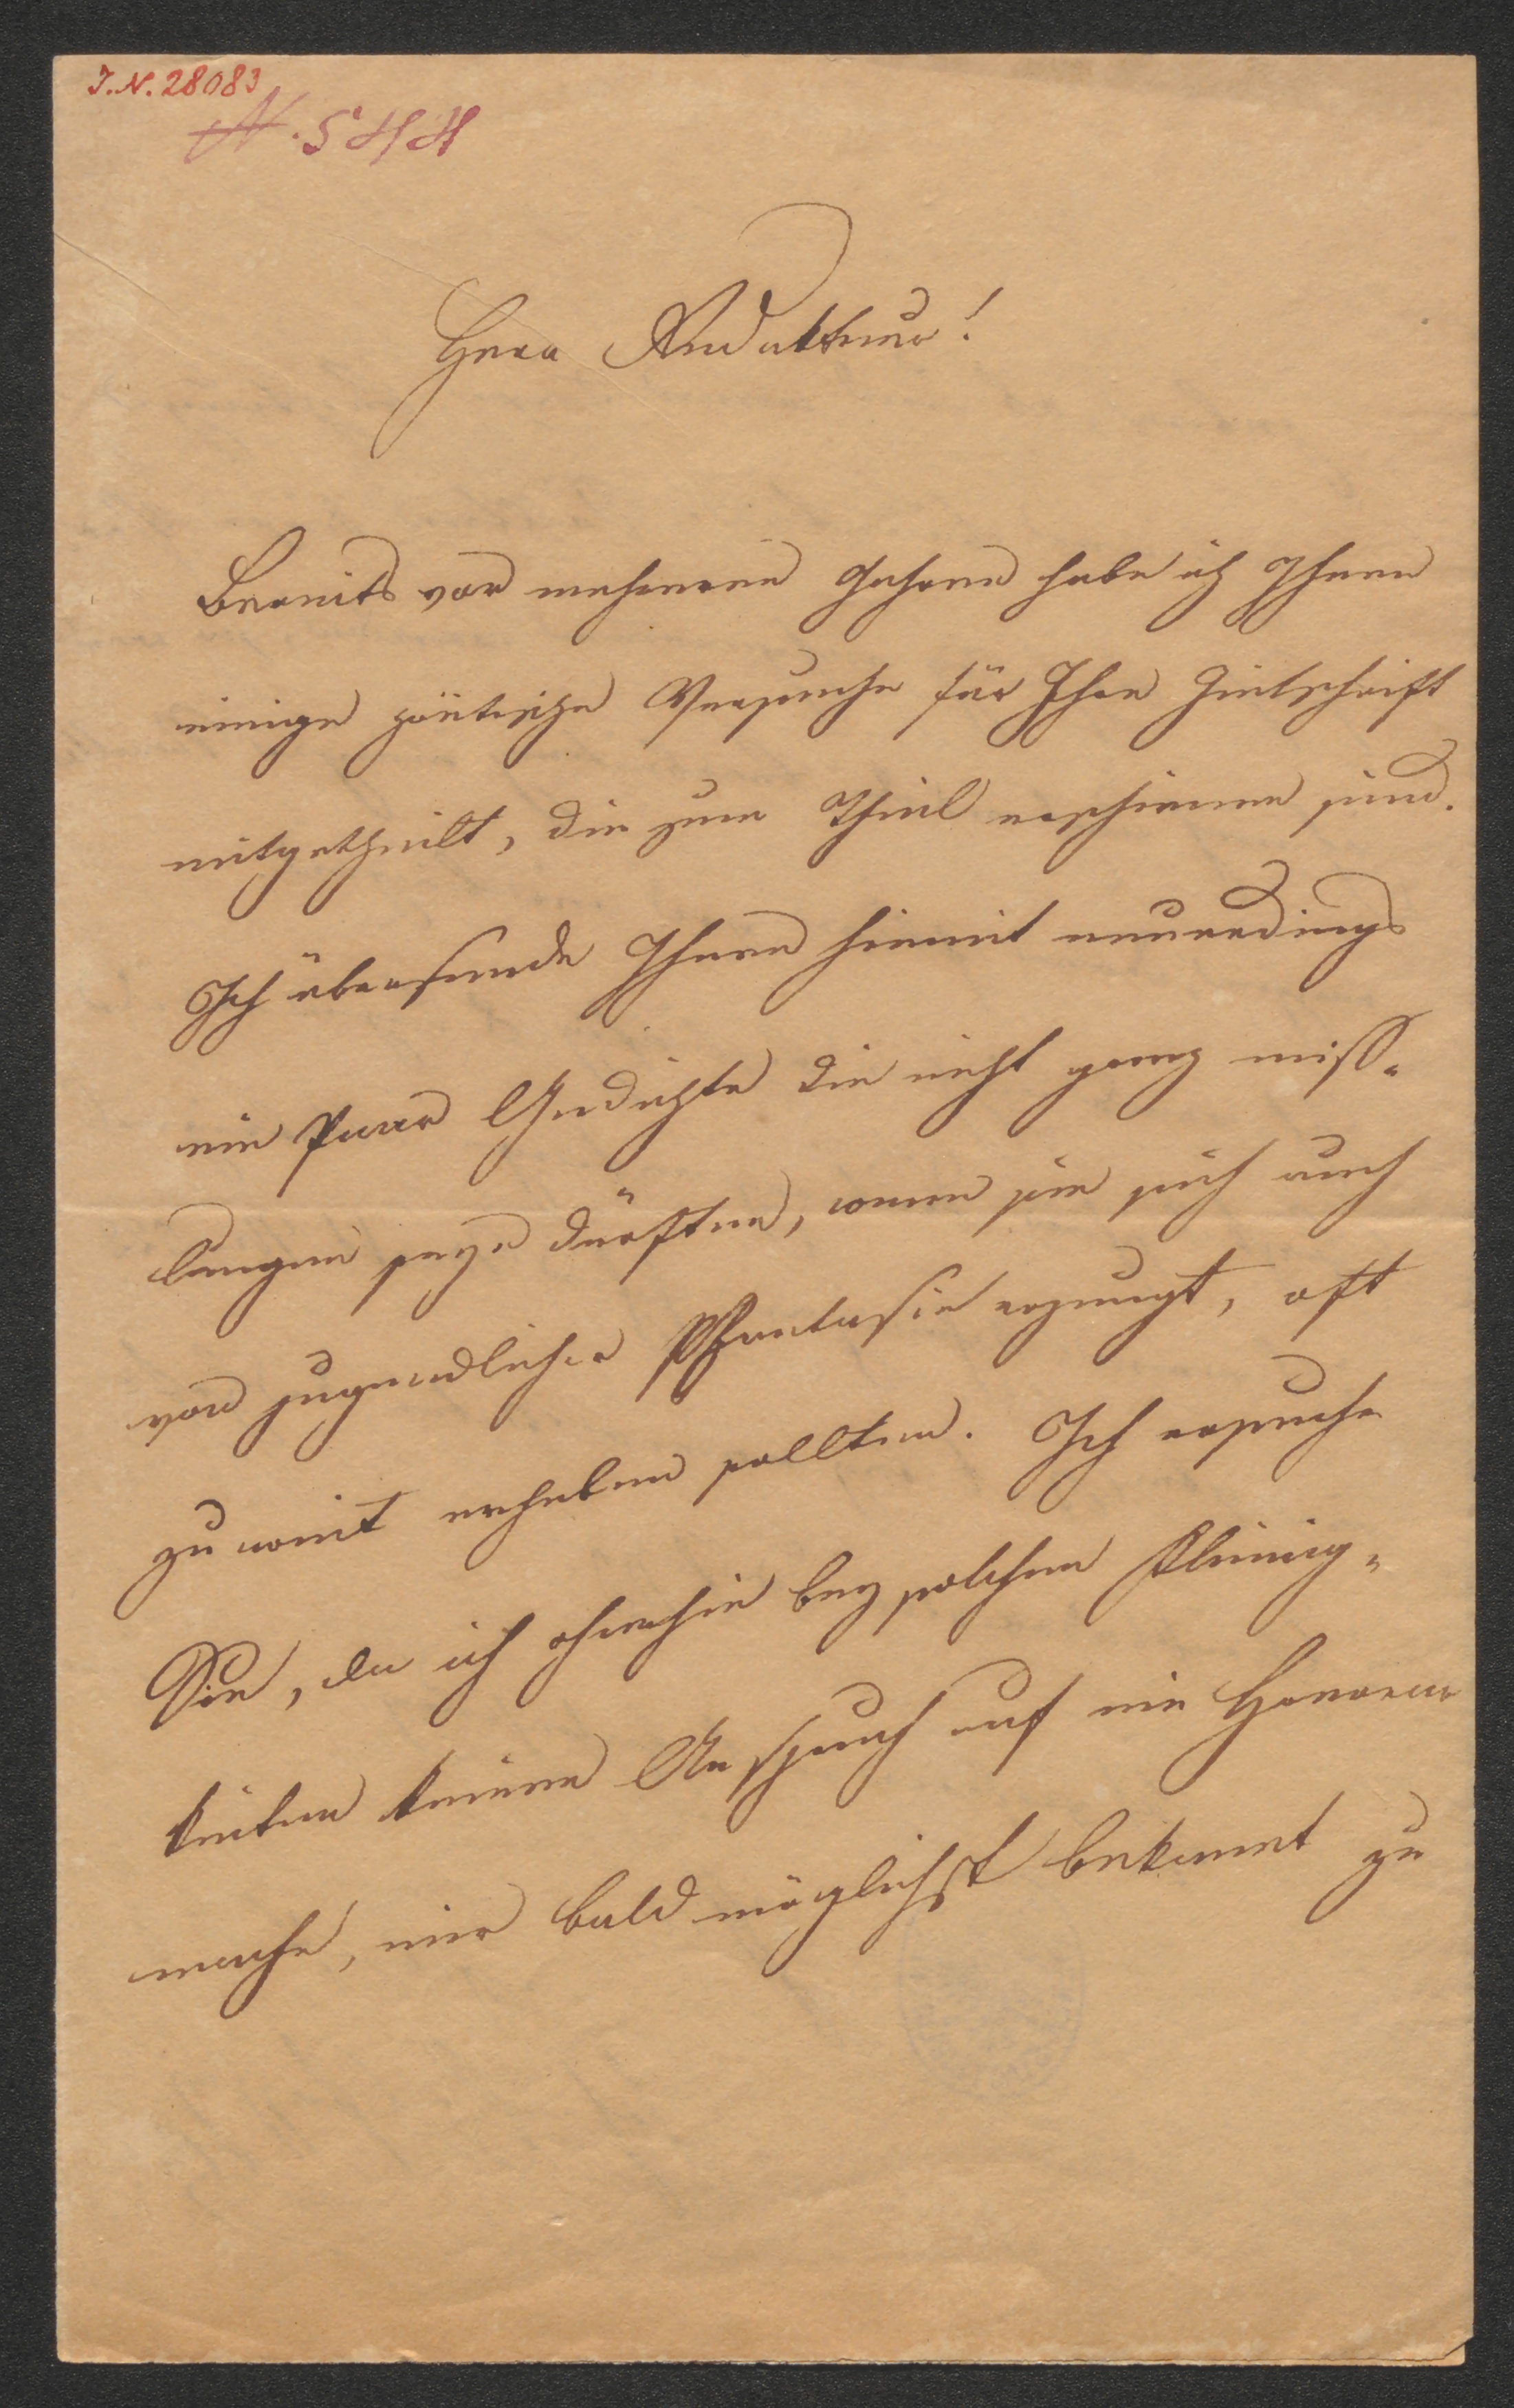 J.N. 28083
N. 544
Herr Redakteur!
Bereits vor mehreren Jahren habe ich Ihnen
einige poëtische Versuche für Ihre Zeitschrift
mitgetheilt, die zum Theil erschienen sind.
Ich übersende Ihnen hiemit neuerdings
ein Paar Gedichte die nicht ganz miss-
lungen seyn dürften, wenn sie sich auch
von jugendlicher Phantasie erzeugt, oft
zu weit erheben sollten. Ich ersuche
Sie, da ich ohnehin bey solchen Kleinig-
keiten keinen Anspruch auf ein Honorar
mache, mir bald möglichst bekannt zu